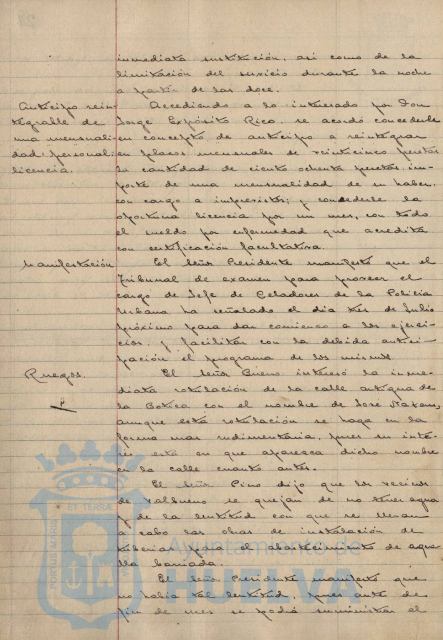 inmediata sustitución, así como de la
limitación del servicio durante la noche
a partir de las doce.
Anticipo rein-
tegrable de
una mensuali-
dad personal.
licencia.
Accediendo a lo interesado por Don
Jorge Expósito Rico, se acordó concederle
en concepto de anticipo a reintegrar
en plazos mensuales de veinticinco pesetas
la cantidad de ciento ochenta pesetas, im-
porte de una mensualidad de su haber,
con cargo a imprevistos; y concederle la
oportuna licencia por un mes, con todo
el sueldo por enfermedad que acredita
con certificación facultativa.
Manifestación
El Señor Presidente manifestó que el
Tribunal de examen para proveer el
cargo de Jefe de Celadores de la Policía
Urbana ha señalado el día tres de Julio
próximo para dar comienzo a los ejerci-
cios, y facilitar con la debida antici-
pación el programa de los mismos.
Ruegos.
El Señor Bueno interesó la inme-
diata rotulación de la calle antigua de
la Botica con el nombre de José Nakens,
aunque esta rotulación se haga en la
forma mas rudimentaria, pues su inte-
rés está en que aparezca dicho nombre
en la calle cuanto antes.
El Señor Pino dijo que los vecinos
de se quejan de no tener agua
y de la lentitud con que se llevan
a cabo las obras de instalación de
tuberías para el abastecimiento de aque-
lla barriada.
El Señor Presidente manifestó que
no había tal lentitud, pues antes de
fin de mes se podrá suministrar el
PORTUS MARIS
ET TERRAE
Ayuntamiento de
HUELVA